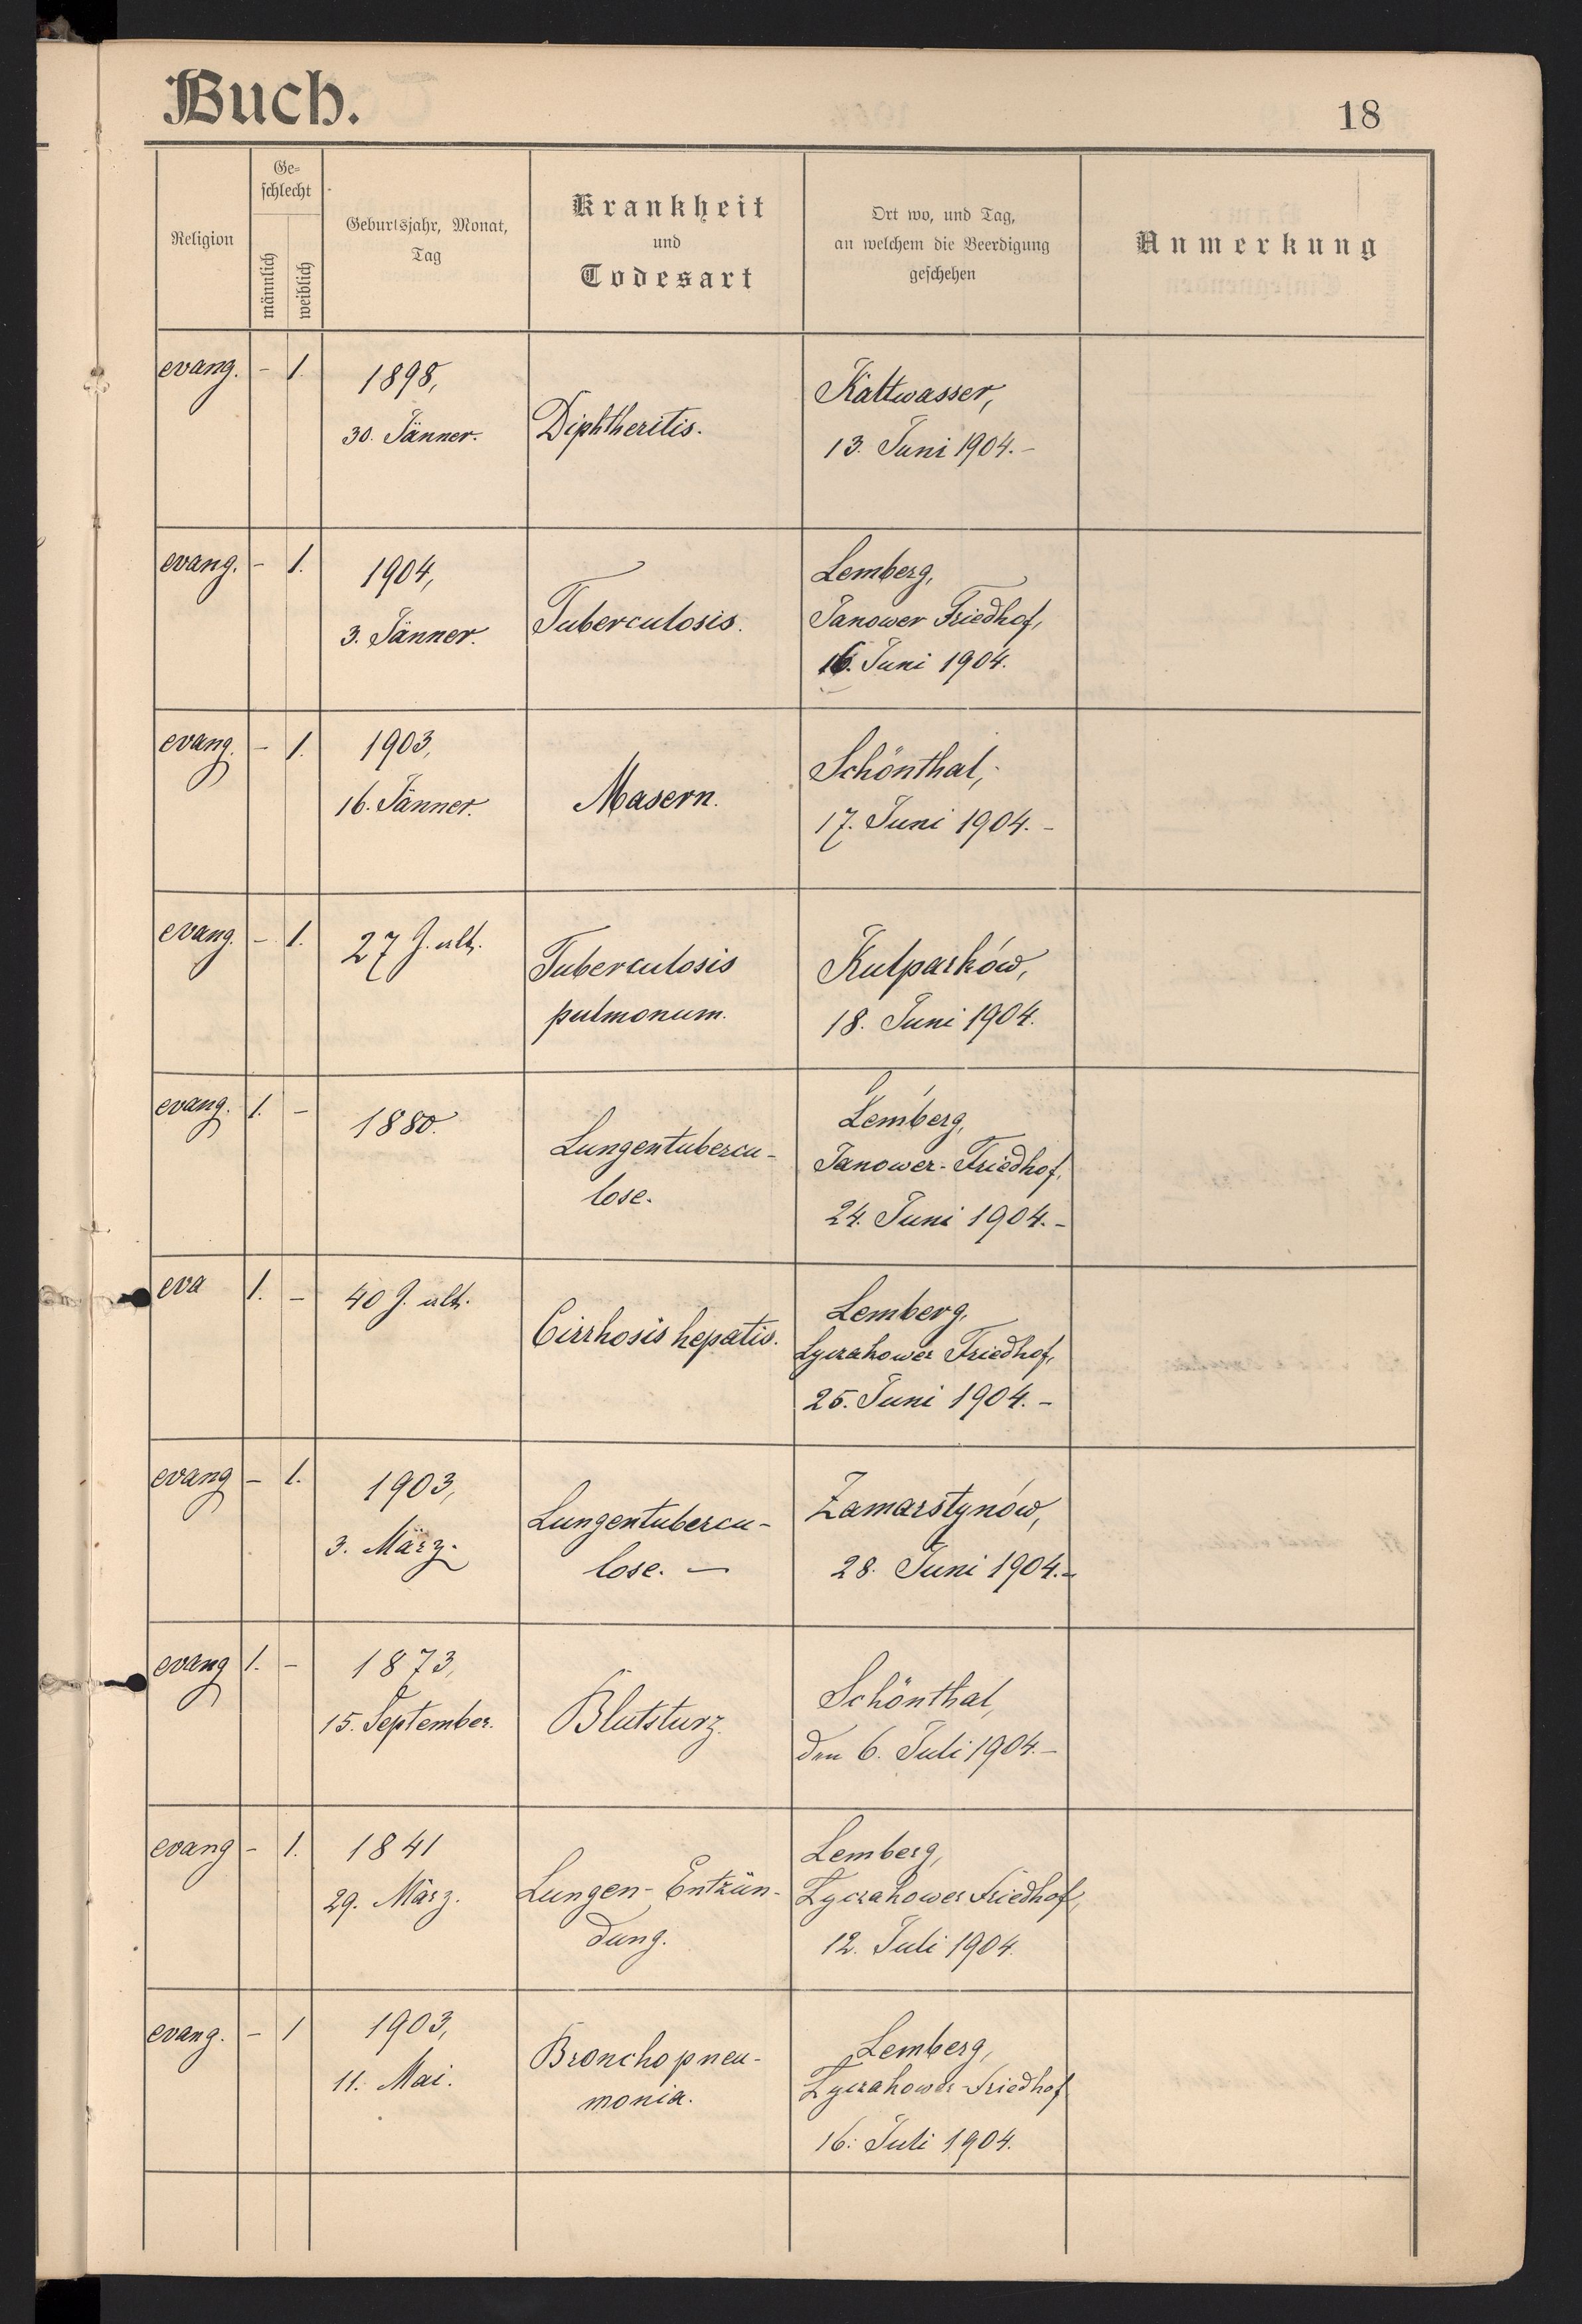 Buch.
18
Religion
Ge-
schlecht
männlich
weiblich
Geburtsjahr, Monat,
Tag
Krankheit
und
Todesart
Ort wo, und Tag,
an welchem die Beerdigung
geschehen
Anmerkung
evang. - 1.
1898,
30. Jänner.
Diphtheritis.
Kaltwasser,
13. Juni 1904. -
evang. - 1.
1904,
3. Jänner.
Tuberculosis.
Lemberg,
Janower Friedhof,
16. Juni 1904.
evang. - 1.
1903,
16. Jänner.
Masern.
Schönthal,
17. Juni 1904. -
evang. - 1.
27 J. alt.
Tuberculosis
pulmonum.
Kulparków,
18. Juni 1904.
evang. 1. -
1880.
Lungentubercu-
lose.
Lemberg,
Janower-Friedhof,
24. Juni 1904. -
eva 1. -
40 J. alt.
Cirrhosis hepatis.
Lemberg,
Lyczakower Friedhof,
25. Juni 1904. -
evang - 1.
1903,
3. März.
Lungentubercu-
lose. -
Zamarstynów,
28. Juni 1904. -
evang 1. -
1873,
15. September.
Blutsturz.
Schönthal,
den 6. Juli 1904. -
evang - 1.
1841
29. März.
Lungen-Entzün-
dung.
Lemberg,
Lyczakower Friedhof,
12. Juli 1904.
evang. - 1
1903,
11. Mai.
Bronchopneu-
monia.
Lemberg,
Lyczakower-Friedhof
16. Juli 1904.